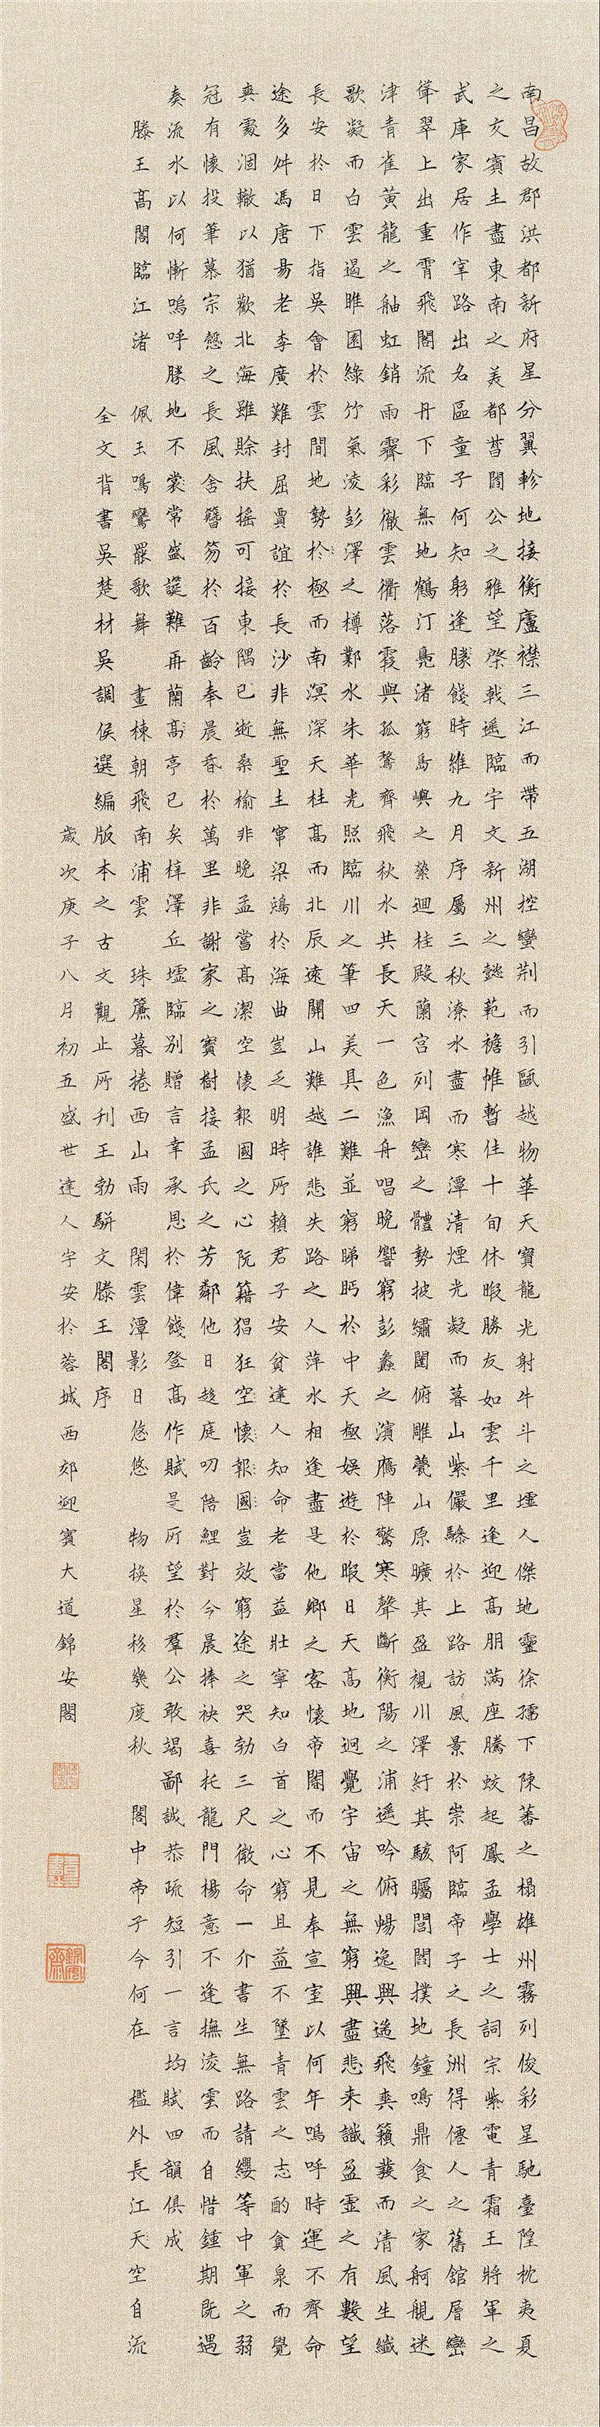 南昌故郡洪都新府星分翼軫地接衡廬襟三江而帶五湖控蠻荊而引甌越物華天寶龍光射牛斗之墟人傑地靈徐孺下陳蕃之榻雄州霧列俊彩星馳臺隍枕夷夏
之交賓主盡東南之美都督閻公之雅望棨戟遙臨宇文新州之懿範襜帷暫住十旬休暇勝友如雲千里逢迎高朋滿座騰蛟起鳳孟學士之詞宗紫電青霜王將軍之
武庫家居作宰路出名區童子何知躬逢勝餞時維九月序屬三秋潦水盡而寒潭清煙光凝而暮山紫儼驂於上路訪風景於崇阿臨帝子之長洲得僊人之舊館層巒
聳翠上出重霄飛閣流丹下臨無地鶴汀鳧渚窮島嶼之縈迴桂殿蘭宮列岡巒之體勢披繡闥俯雕甍山原曠其盈視川澤紆其駭矚閭閻撲地鐘鳴鼎食之家舸艦迷
津青雀黃龍之舳虹銷雨霽彩徹雲衢落霞與孤鶩齊飛秋水共長天一色漁舟唱晚響窮彭蠡之濱鴈陣驚寒聲斷衡陽之浦遙吟俯暢逸興遄飛爽籟發而清風生纖
歌凝而白雲遏睢園綠竹氣淩彭澤之樽鄴水朱華光照臨川之筆四美具二難並窮睇眄於中天極娛遊於暇日天高地迥覺宇宙之無窮興盡悲來識盈虛之有數望
長安於日下指吳會於雲間地勢於極而南溟深天柱高而北辰遠關山難越誰悲失路之人萍水相逢盡是他鄉之客懷帝閽而不見奉宣室以何年嗚呼時運不齊命
途多舛馮唐易老李廣難封屈賈誼於長沙非無聖主竄梁鴻於海曲豈乏明時所賴君子安貧達人知命老當益壯寧知白首之心窮且益不墜青雲之志酌貪泉而覺
爽處涸轍以猶歡北海雖賒扶搖可接東隅已逝桑榆非晚孟嘗高潔空懷報國之心阮籍猖狂空懷報國豈效窮途之哭勃三尺微命一介書生無路請纓等中軍之弱
冠有懷投筆慕宗愨之長風舍簪笏於百齡奉晨昏於萬里非謝家之寶樹接孟氏之芳鄰他日趨庭叨陪鯉對今晨捧袂喜托龍門楊意不逢撫淩雲而自惜鍾期既遇
奏流水以何慚嗚呼勝地不裳常盛筵難再蘭高亭已矣梓澤丘墟臨別贈言幸承恩於偉餞登高作賦是所望於羣公敢竭鄙誠恭疏短引一言均賦四韻俱成
滕王高閣臨江渚 佩玉鳴鸞罷歌舞 畫棟朝飛南浦雲 珠簾暮捲西山雨 閑雲潭影日悠悠 物換星移幾度秋 閣中帝子今何在 檻外長江天空自流
全文背書吳楚材吳調侯選編版本之古文觀止所刊王勃駢文滕王閣序
歲次庚子八月初五盛世達人宇安於蓉城西郊迎賓大道錦安閣